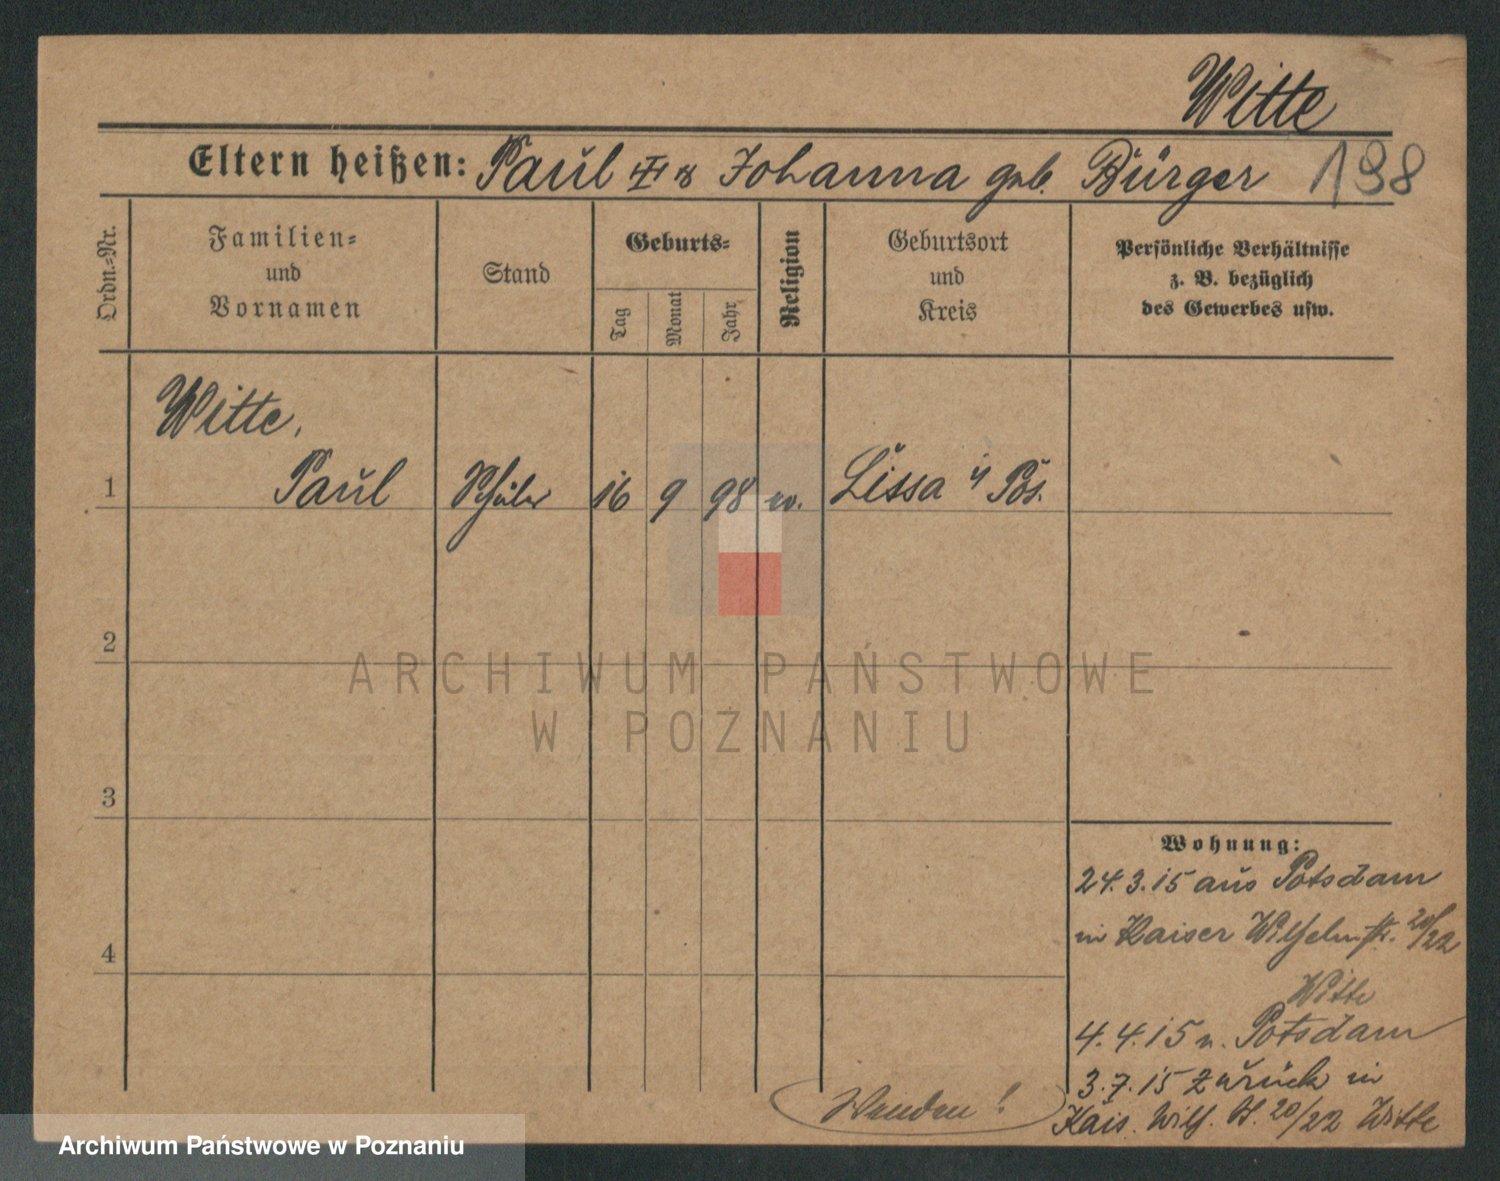 Witte
Eltern heißen: Paul Johanna geb. Bürger 198
Ordn.-Nr.
Familien-
und
Vornamen
Stand
Geburts-
Tag
Monat
Jahr
Religion
Geburtsort
und
Kreis
Persönliche Verhältnisse
z. B. bezüglich
des Gewerbes usw.
Witte,
1 Paul Schüler 16 9 98 Lissa Pos.
2
3
4
ARCHIWUM PAŃSTWOWE
W POZNANIU
Wohnung:
24.3.15 aus Potsdam
in Kaiser Wilhelmstr. 20/22
Witte
4.4.15 n. Potsdam
3.7.15 zurück in
Kais. Wilh. St. 20/22 Witte
Wenden!
Archiwum Państwowe w Poznaniu